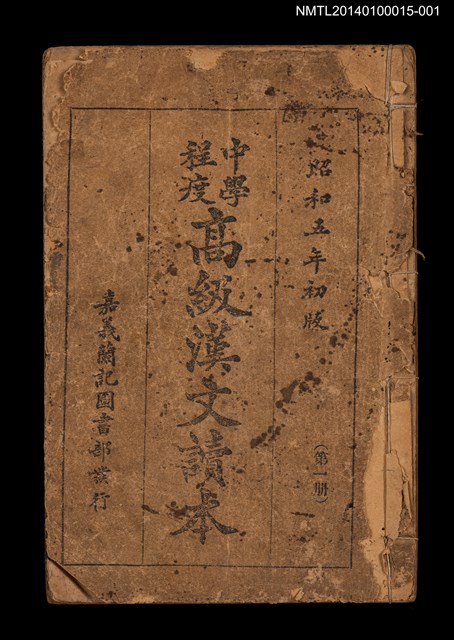 NMTL20140100015-001
昭和五年初版
（第一册）
中學
程度
高級漢文讀本
嘉義蘭記圖書部發行